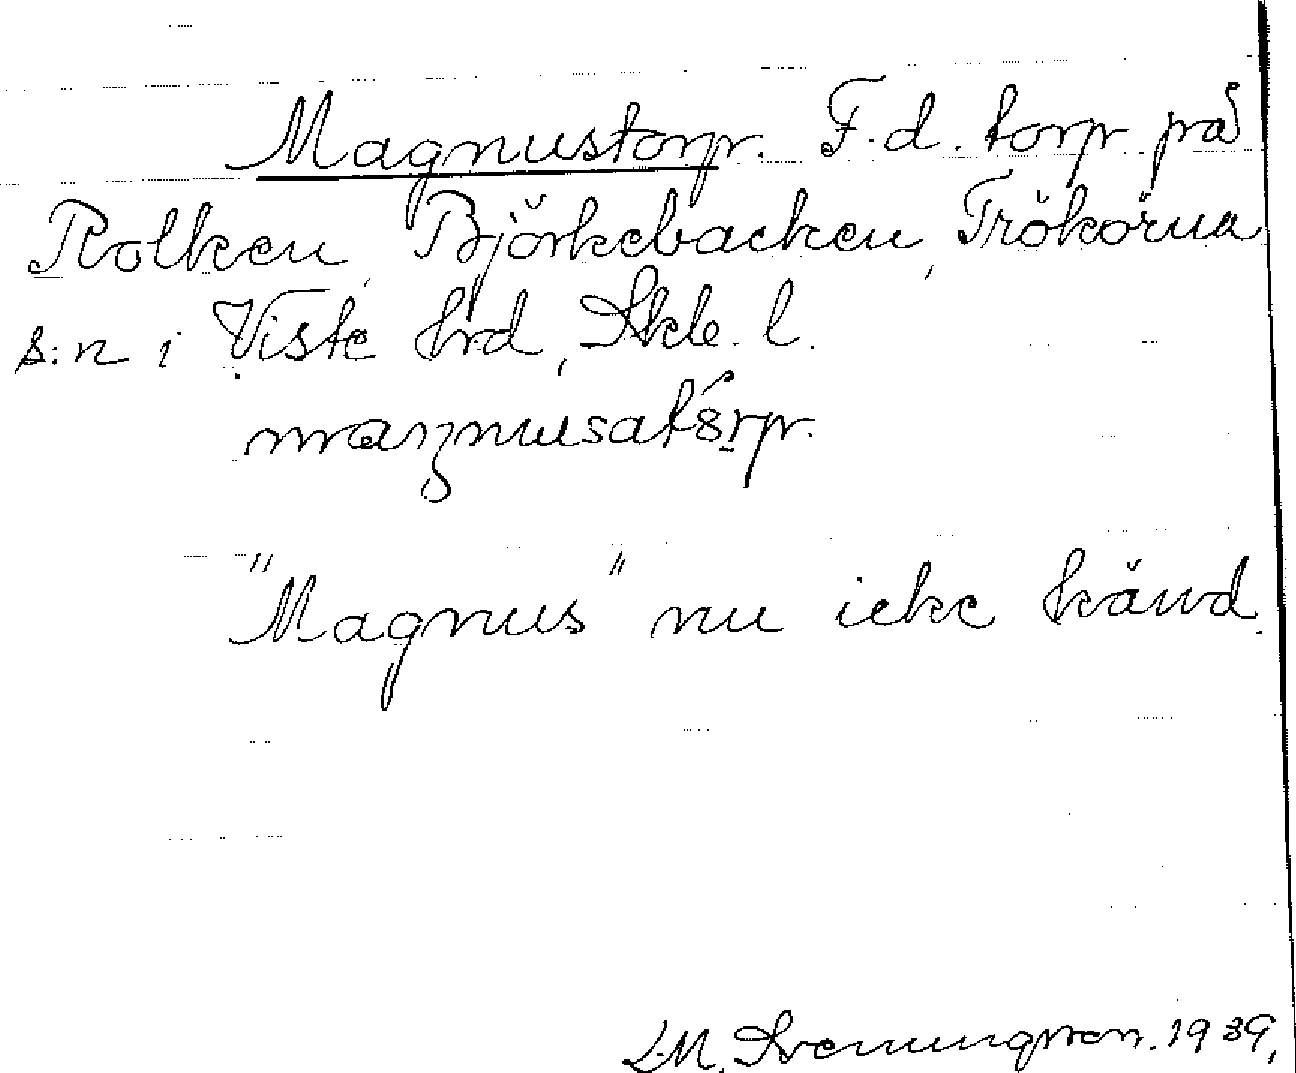 Magnustorp. F.d. torp på
Rolken, Björkebacken, Trökörna
s:n i Viste hrd, Skb. l.
"Magnus" nu icke känd.
L.M. Svenungsson. 1939.